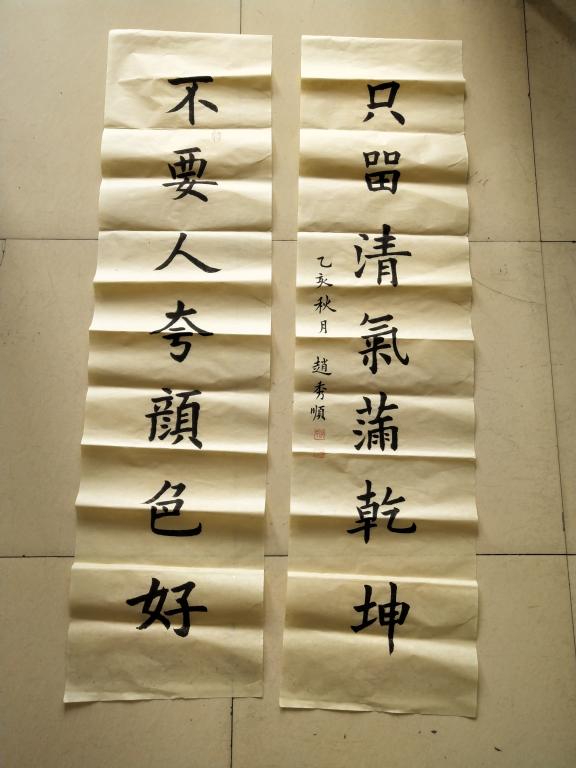 不要人夸顏色好
只留清氣满乾坤
乙亥秋月 趙秀順